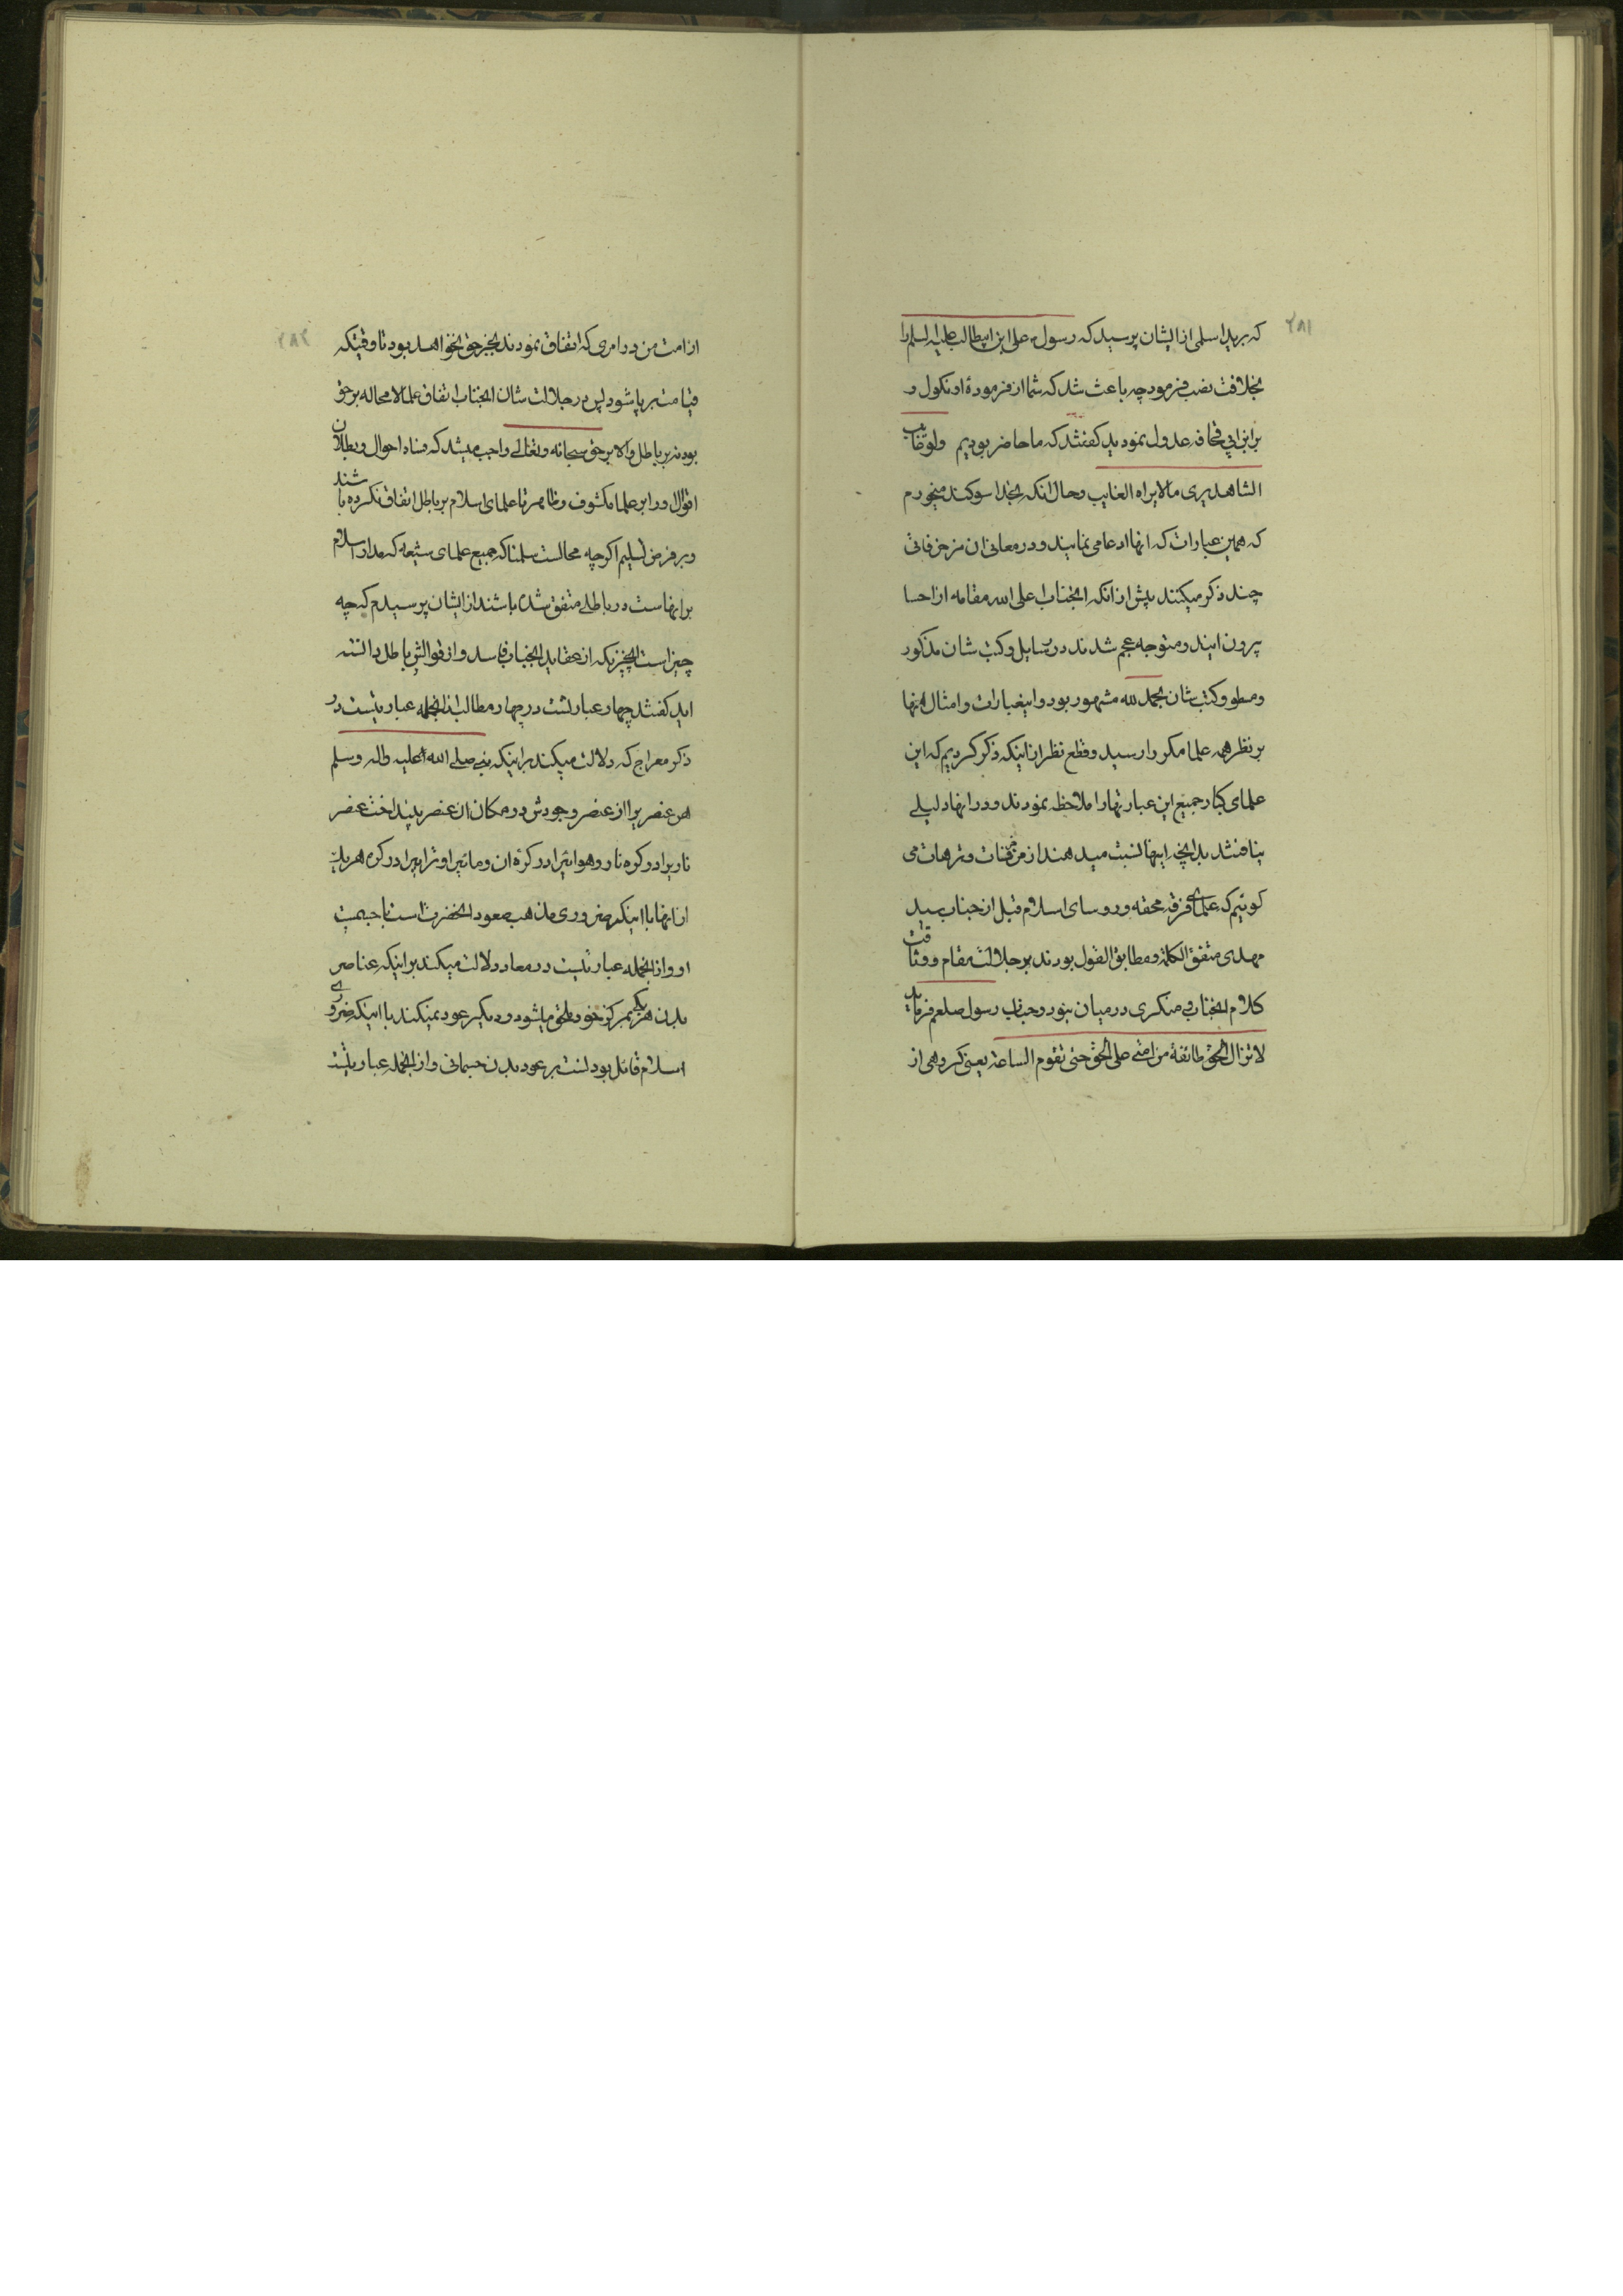 ۲۸۱
که برید اسلمی از ایشان پرسید که رسول علی ابن ابیطالب علیه السلم را
بخلافت نصب فرمود چه باعث شد که شما از فرمودهٔ او نکول و
بر ابن ابی قحافه عدول نمودید کفتند که ما حاضر بودیم ولو غایب
الشاهد یری مالا یراه الغایب وحال انکه بخدا سوکند میخورم
که همین عبارات که انها ادعا می نمایند و در معانی ان مزخرفاتی
چند ذکر میکنند پیش از انکه انجناب اعلی الله مقامه از احسا
بیرون ایند و متوجه عجم شدند در رسایل و کتب شان مذکور
ومسطور و کتب شان بحمد لله مشهور بود و اینعبارات و امثال انها
بر نظر همه علما مکررا رسید و قطع نظر از اینکه ذکر کردیم که این
علمای کبار جمیع این عبارتها را ملاحظه نمودند و در انها دلیلی
نیافتند بدانچه اینها نسبت میدهند از مزخرفات و ترهات می
کوئیم که علمای فرقه محقه و روسای اسلام قبل از جناب سید
مهدی متفق الکلمه و مطابق القول بودند بر جلالت مقام و وثاقت
کلام انجناب منکری در میان نبود و جناب رسول صلعم فرماید
لا تزال الحق طائفة من امتی علی الحق حتی تقوم الساعة یعنی کروهی از
۲۸۲
از امت من در امری که اتفاق نمودند بجز حق نخواهد بود تا وقتیکه
قیامت بر پا شود پس در جلالت شان انجناب اتفاق علما لا محاله بر حق
بود نه بر باطل والا بر حق سبحانه وتعالی واجب میشد که فساد احوال و بطلان
اقوال او را بر علما مکشوف و ظاهر تا علمای اسلام بر باطل اتفاق نکرده باشند
و بر فرض تسلیم اکرچه محالست سلمنا که جمیع علمای شیعه که مدار اسلام
بر انهاست در باطلی متفق شده باشند از ایشان پرسیدم که چه
چیز است انچیزیکه از عقاید انجناب فاسد و از قوالش باطل دانسته
اید کفتند چهار عبارتست در چهار مطالب از انجمله عبارتیست در
ذکر معراج که دلالت میکند بر اینکه نبی صلی الله علیه واله وسلم
هر عنصریرا از عنصر وجودش در مکان ان عنصر بینداخت عنصر
ناریرا در کره نار و هوائیرا در کرهٔ ان و مائیرا و ترابیرا در کره هریک
از انها با اینکه ضروری مذهب صعود انحضرت است با جسمیت
او و از انجمله عبارتیست در معاد دلالت میکند بر اینکه عناصر
بدن هر یکی بمرکز خود ملحق میشود و دیکر عود نمیکند با اینکه ضروری
اسلام قائل بودنست بر عود بدن جسمانی و از انجمله عبارتیست